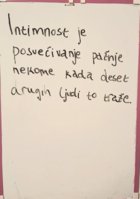 Intimnost je
posvećivanje pažnje
nekome kada deset
drugih ljudi to traže.